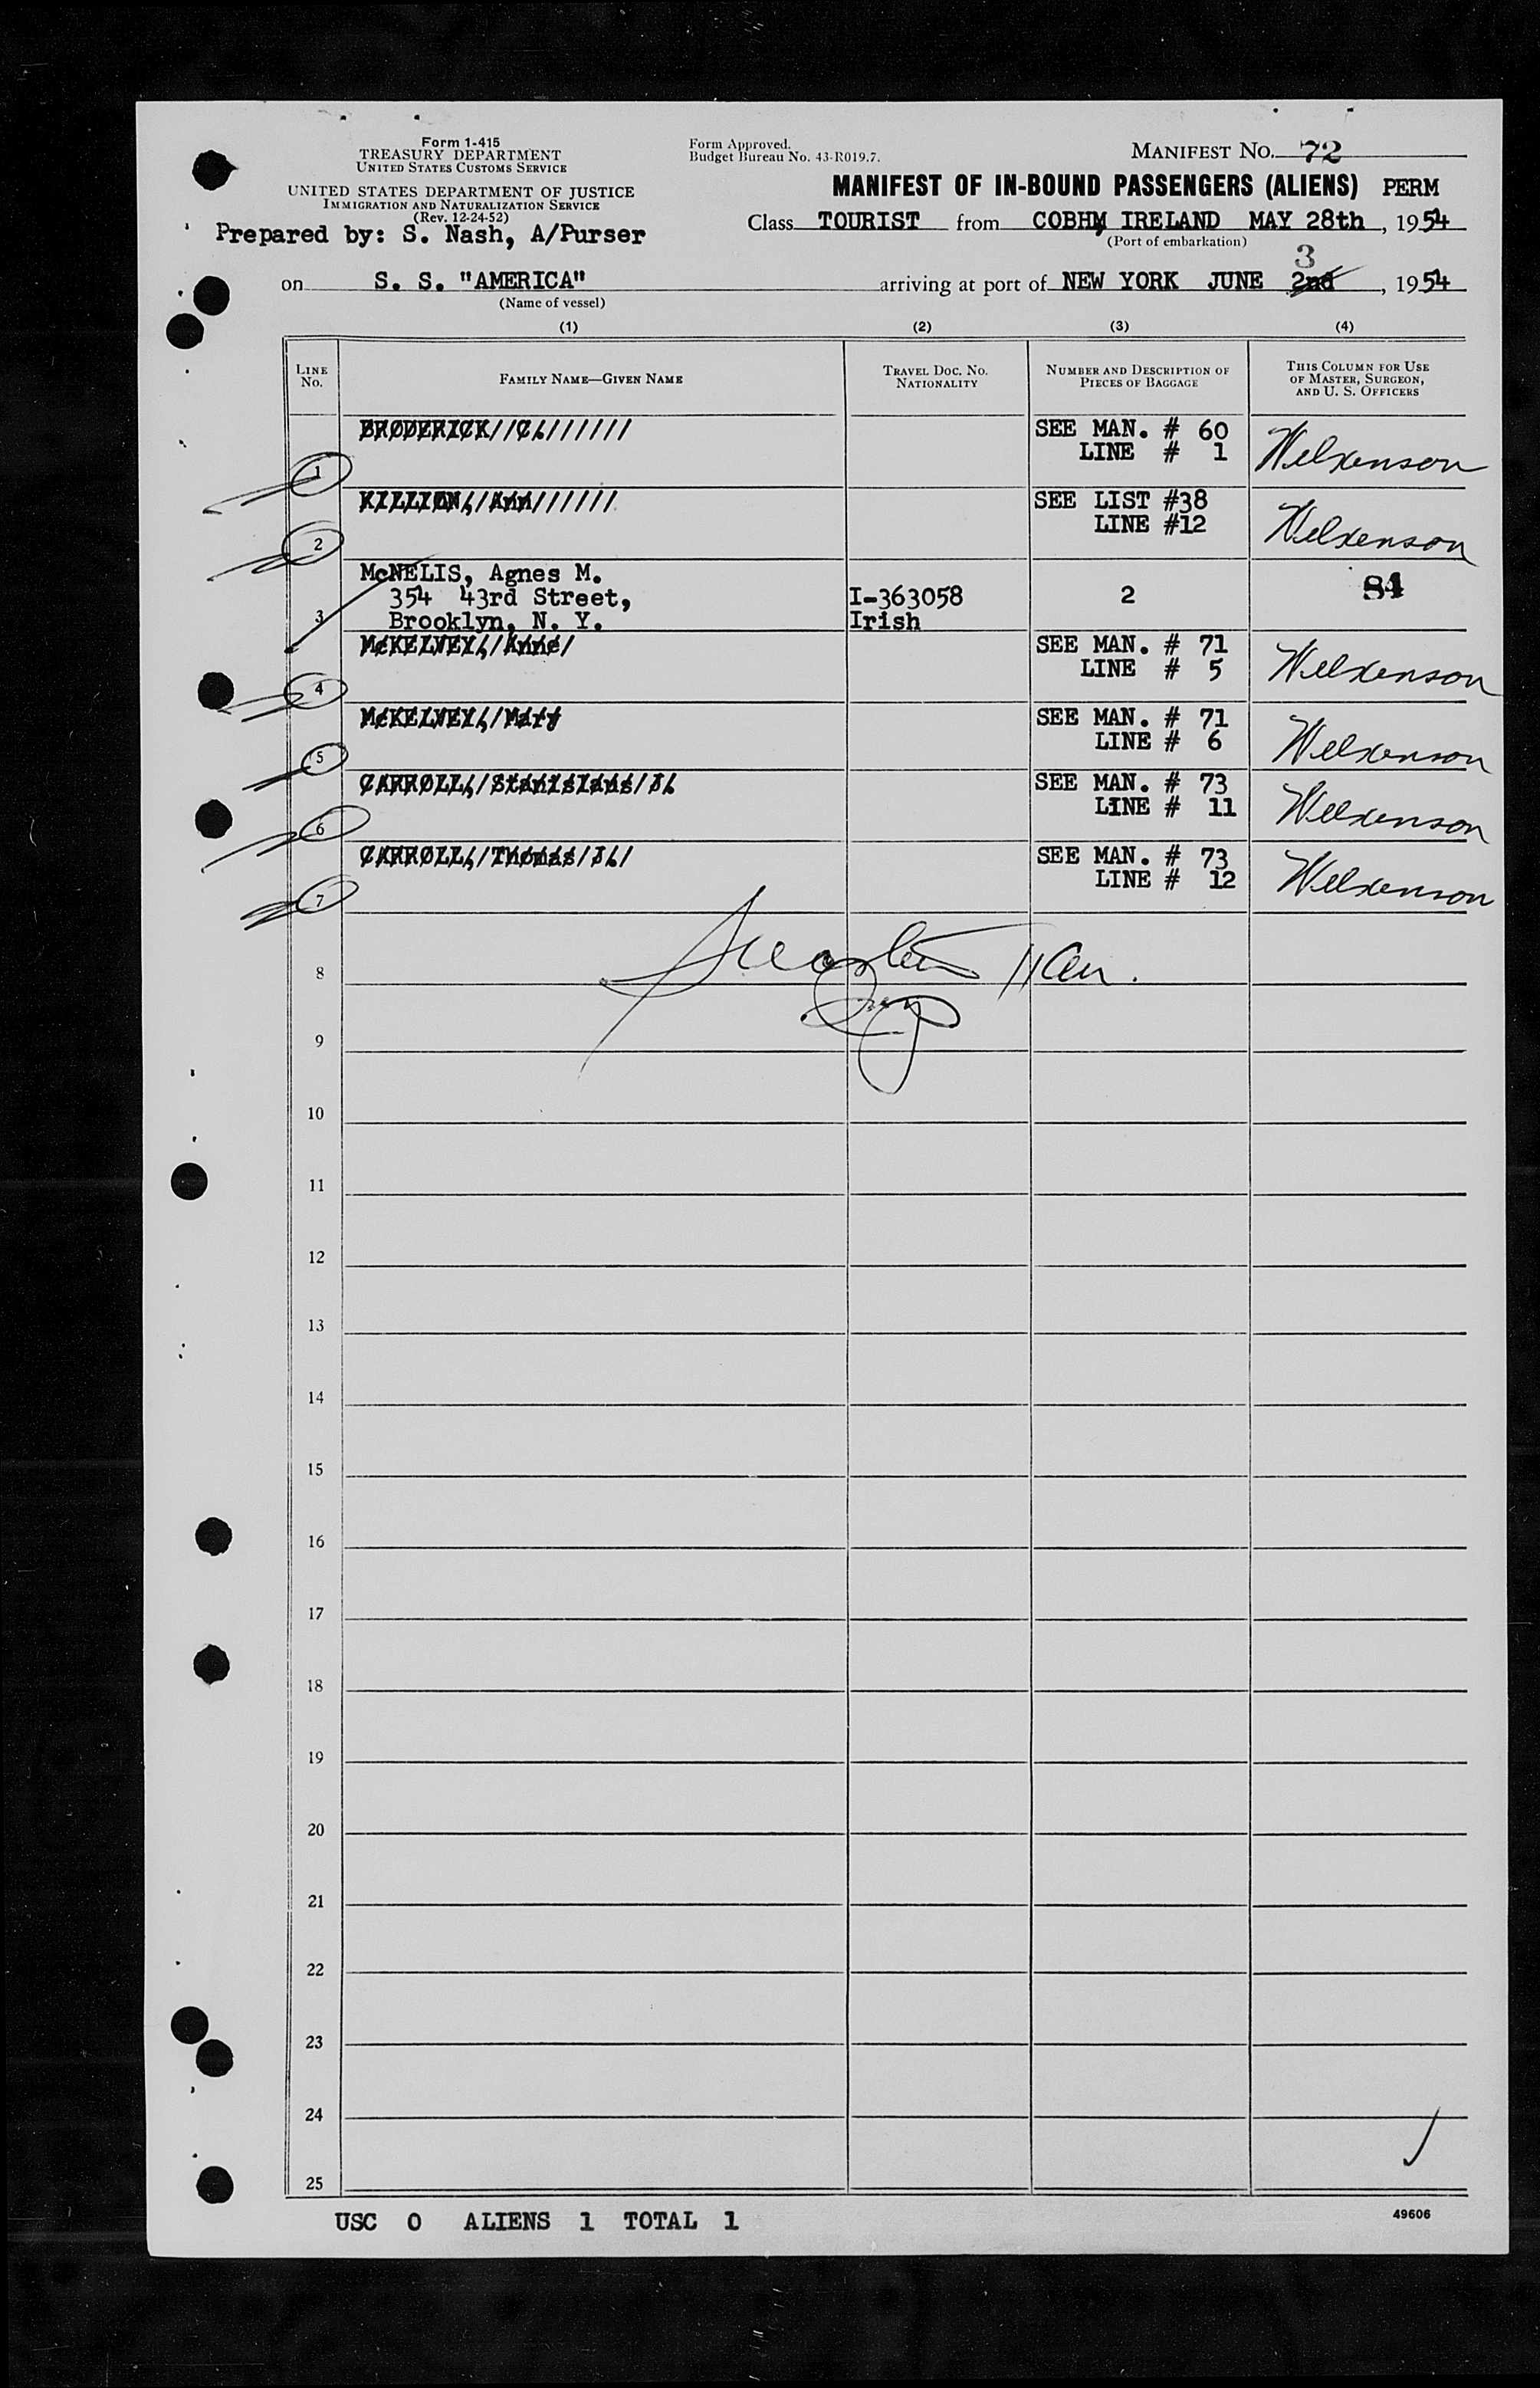 Form 1-415
TREASURY DEPARTMENT
UNITED STATES CUSTOMS SERVICE
UNITED STATES DEPARTMENT OF JUSTICE
IMMIGRATION AND NATURALIZATION SERVICE
(Rev. 12-24-52)
Prepared by: S. Nash, A/Purser
Form Approved.
Budget Bureau No. 43-R019.7.
MANIFEST NO. 72
MANIFEST OF IN-BOUND PASSENGERS (ALIENS) PERM
Class TOURIST from COBH, IRELAND MAY 28th, 1954
(Port of embarkation)
3
on S. S. "AMERICA" arriving at port of NEW YORK JUNE 2nd, 1954
(Name of vessel)
(1) (2) (3) (4)
LINE No. FAMILY NAME—GIVEN NAME TRAVEL DOC. NO. NATIONALITY NUMBER AND DESCRIPTION OF PIECES OF BAGGAGE THIS COLUMN FOR USE OF MASTER, SURGEON, AND U. S. OFFICERS
BRODERICK//C.//////  SEE MAN. # 60
1 LINE # 1 Wilkenson
KILLION,/Ann////// SEE LIST #38
2 LINE #12 Wilkenson
McNELIS, Agnes M.
354 43rd Street, I-363058 2 84
3 Brooklyn, N. Y. Irish
McKELVEY,/Anne/ SEE MAN. # 71
4 LINE # 5 Wilkenson
McKELVEY,/Mary SEE MAN. # 71
5 LINE # 6 Wilkenson
CARROLL,/Stanislaus/J. SEE MAN. # 73
6 LINE # 11 Wilkenson
CARROLL,/Thomas/J./ SEE MAN. # 73
7 LINE # 12 Wilkenson
8
9
10
11
12
13
14
15
16
17
18
19
20
21
22
23
24
25
USC 0 ALIENS 1 TOTAL 1
49606